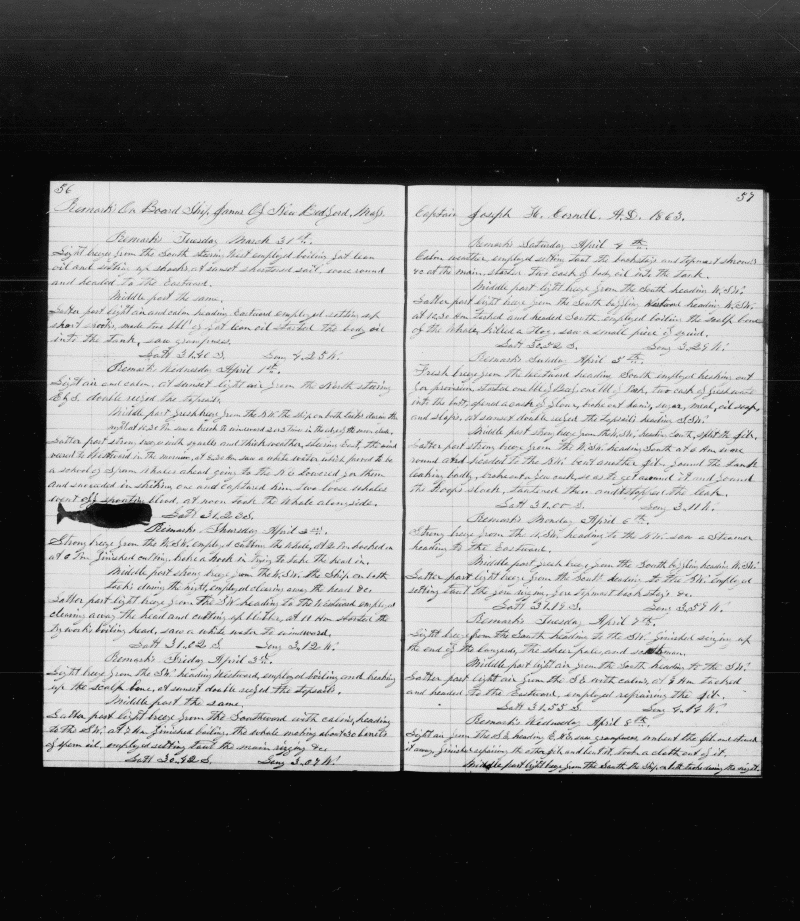 56
Remarks On Board Ship James Of New Bedford, Mass.
Remarks Tuesday March 31st.
Light breeze from the South steering West employed boiling fat lean
oil and setting up shooks, at sunset shortened sail, wore round
and headed to the Eastward.
Middle part the same.
Latter part light air and calm heading Eastward employed setting up
short shooks, made two bbl of fat lean oil started the body oil
into the tank, saw grampuses.
Latt 31,40 S. Long 4,25 W.
Remarks Wednesday April 1st.
Light air and calm, at sunset light air from the North steering
E by S. double reefed the topsails.
Middle part fresh breeze from the N.W. the ship on both tacks during the
night
Latter part strong breeze with squalls and thick weather, steering East, the wind
veered to Westward in the morning, at 8,30 Am saw a white water which proved to be
a school of Sperm Whales ahead going to the N.E lowered for them
and succeeded in striking one and captured him two loose whales
went off spouting blood, at noon took the Whale alongside.
Latt 31,26 S.
Remarks Thursday April 2nd.
Strong breeze from the W.S.W. employed cutting the Whale, at 2 Pm hooked in
at 6 Pm finished cutting, broke a hook in trying to take the head in.
Middle part strong breeze from the W.S.W. the Ship on both
tacks during the night, employed clearing away the head &c.
Latter part light breeze from the S.W heading to the Westward employed
clearing away the head and cutting up blubber, at 11 Am started the
try works boiling head, saw a white water to windward.
Latt 31,02 S. Long 3,12 W.
Remarks Friday April 3rd.
Light breeze from the S.W. heading Westward, employed boiling and breaking
up the scalp bone, at sunset double reefed the topsails.
Middle part the same.
Latter part light breeze from the Southward with calms, heading
to the S.W. at 2 Am finished boiling, the whale making about 30 barrels
of sperm oil, employed setting taut the main rigging &c.
Latt 30,42 S. Long 3,07 W.
57
Captain Joseph H. Cornell A.D. 1863.
Remarks Saturday April 4th.
Calm weather employed setting taut the backstays and topmast shrouds
&c at the main, started two cask of body oil into the tank.
Middle part light breeze from the South heading W.S.W.
Latter part light breeze from the South by heading W.S.W.
at 10,30 Am tacked and headed South employed boiling the scalp bone
of the Whale, killed a Hog, saw a small piece of squid.
Latt 30,52 S. Long 3,29 W.
Remarks Sunday April 5th.
Fresh breeze from the Westward heading South employed breaking out
for provision, started one bbl of Beef, one bbl of Pork, two cask of fresh water
into the butt, opened a cask of flour, broke out hams, sugar, meal, oil soap
and slops, at sunset double reefed the topsails heading S.S.W.
Middle part strong breeze from the W.S.W. heading South, split the jib.
Latter part strong breeze from the W.S.W. heading South at 6 Am wore
round and headed to the N.W. bent another jib, found the tank
leaking badly, broke out a few cask, so as to get around it and found
the hoops slack, tautened them and stopped the leak.
Latt 31,00 S. Long 3,11 W.
Remarks Monday April 6th.
Strong breeze from the W.S.W. heading to the N.W. saw a Steamer
heading to the Eastward.
Middle part fresh breeze from the South by heading W.S.W.
Latter part light breeze from the South heading to the S.W. employed
setting taut the fore rigging, fore topmast back stays &c.
Latt 31,18 S. Long 3,59 W.
Remarks Tuesday April 7th.
Light breeze from the South heading to the S.W. finished seizing up
the end of the lanyards, the sheer pole, and
Middle part light air from the South heading to the S.W.
Latter part light air from the S.E with calms, at 8 Am tacked
and headed to the Eastward, employed repairing the jib.
Latt 31,53 S. Long 4,14 W.
Remarks Wednesday April 8th.
Light air from the S.E heading E.N.E. saw grampuses unbent the jib and stowed
it away, finished repairing the other jib and bent it, took a cloth out of it.
Middle part light breeze from the South the Ship on both tacks during the night.